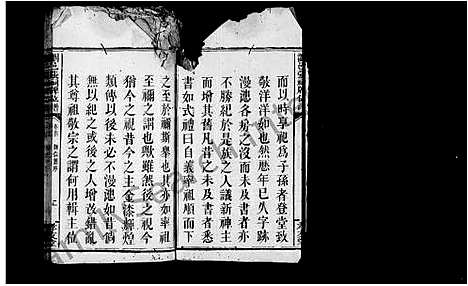 而以時享祀為子孫者登堂致
敬洋洋如也然厯年已久字跡
漫漶各房之沒而未及書者亦
不勝紀於是族之人議新神主
而增其舊凡昔之未及書者悉
書如式禮曰自義率祖順而下
之至於禰斯舉也亦如率祖
至禰之謂也歟雖然後之視今
猶今之視昔今之主金漆輝煌
類傳以後未必不漫漶如昔倘
無以紀之或後之人增改錯亂
其尊祖敬宗之謂何用輯主位